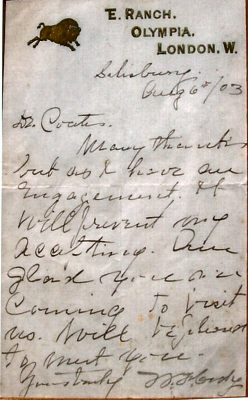 "E. RANCH.
OLYMPIA.
LONDON. W.
Salisbury.
Aug 6th/03
Dr. Coates.
Many thanks
but as I have an
engagement. It
Will prevent my
accepting. Am
glad you are
Coming to visit
us. Will be pleased
to meet you.
Yours truly